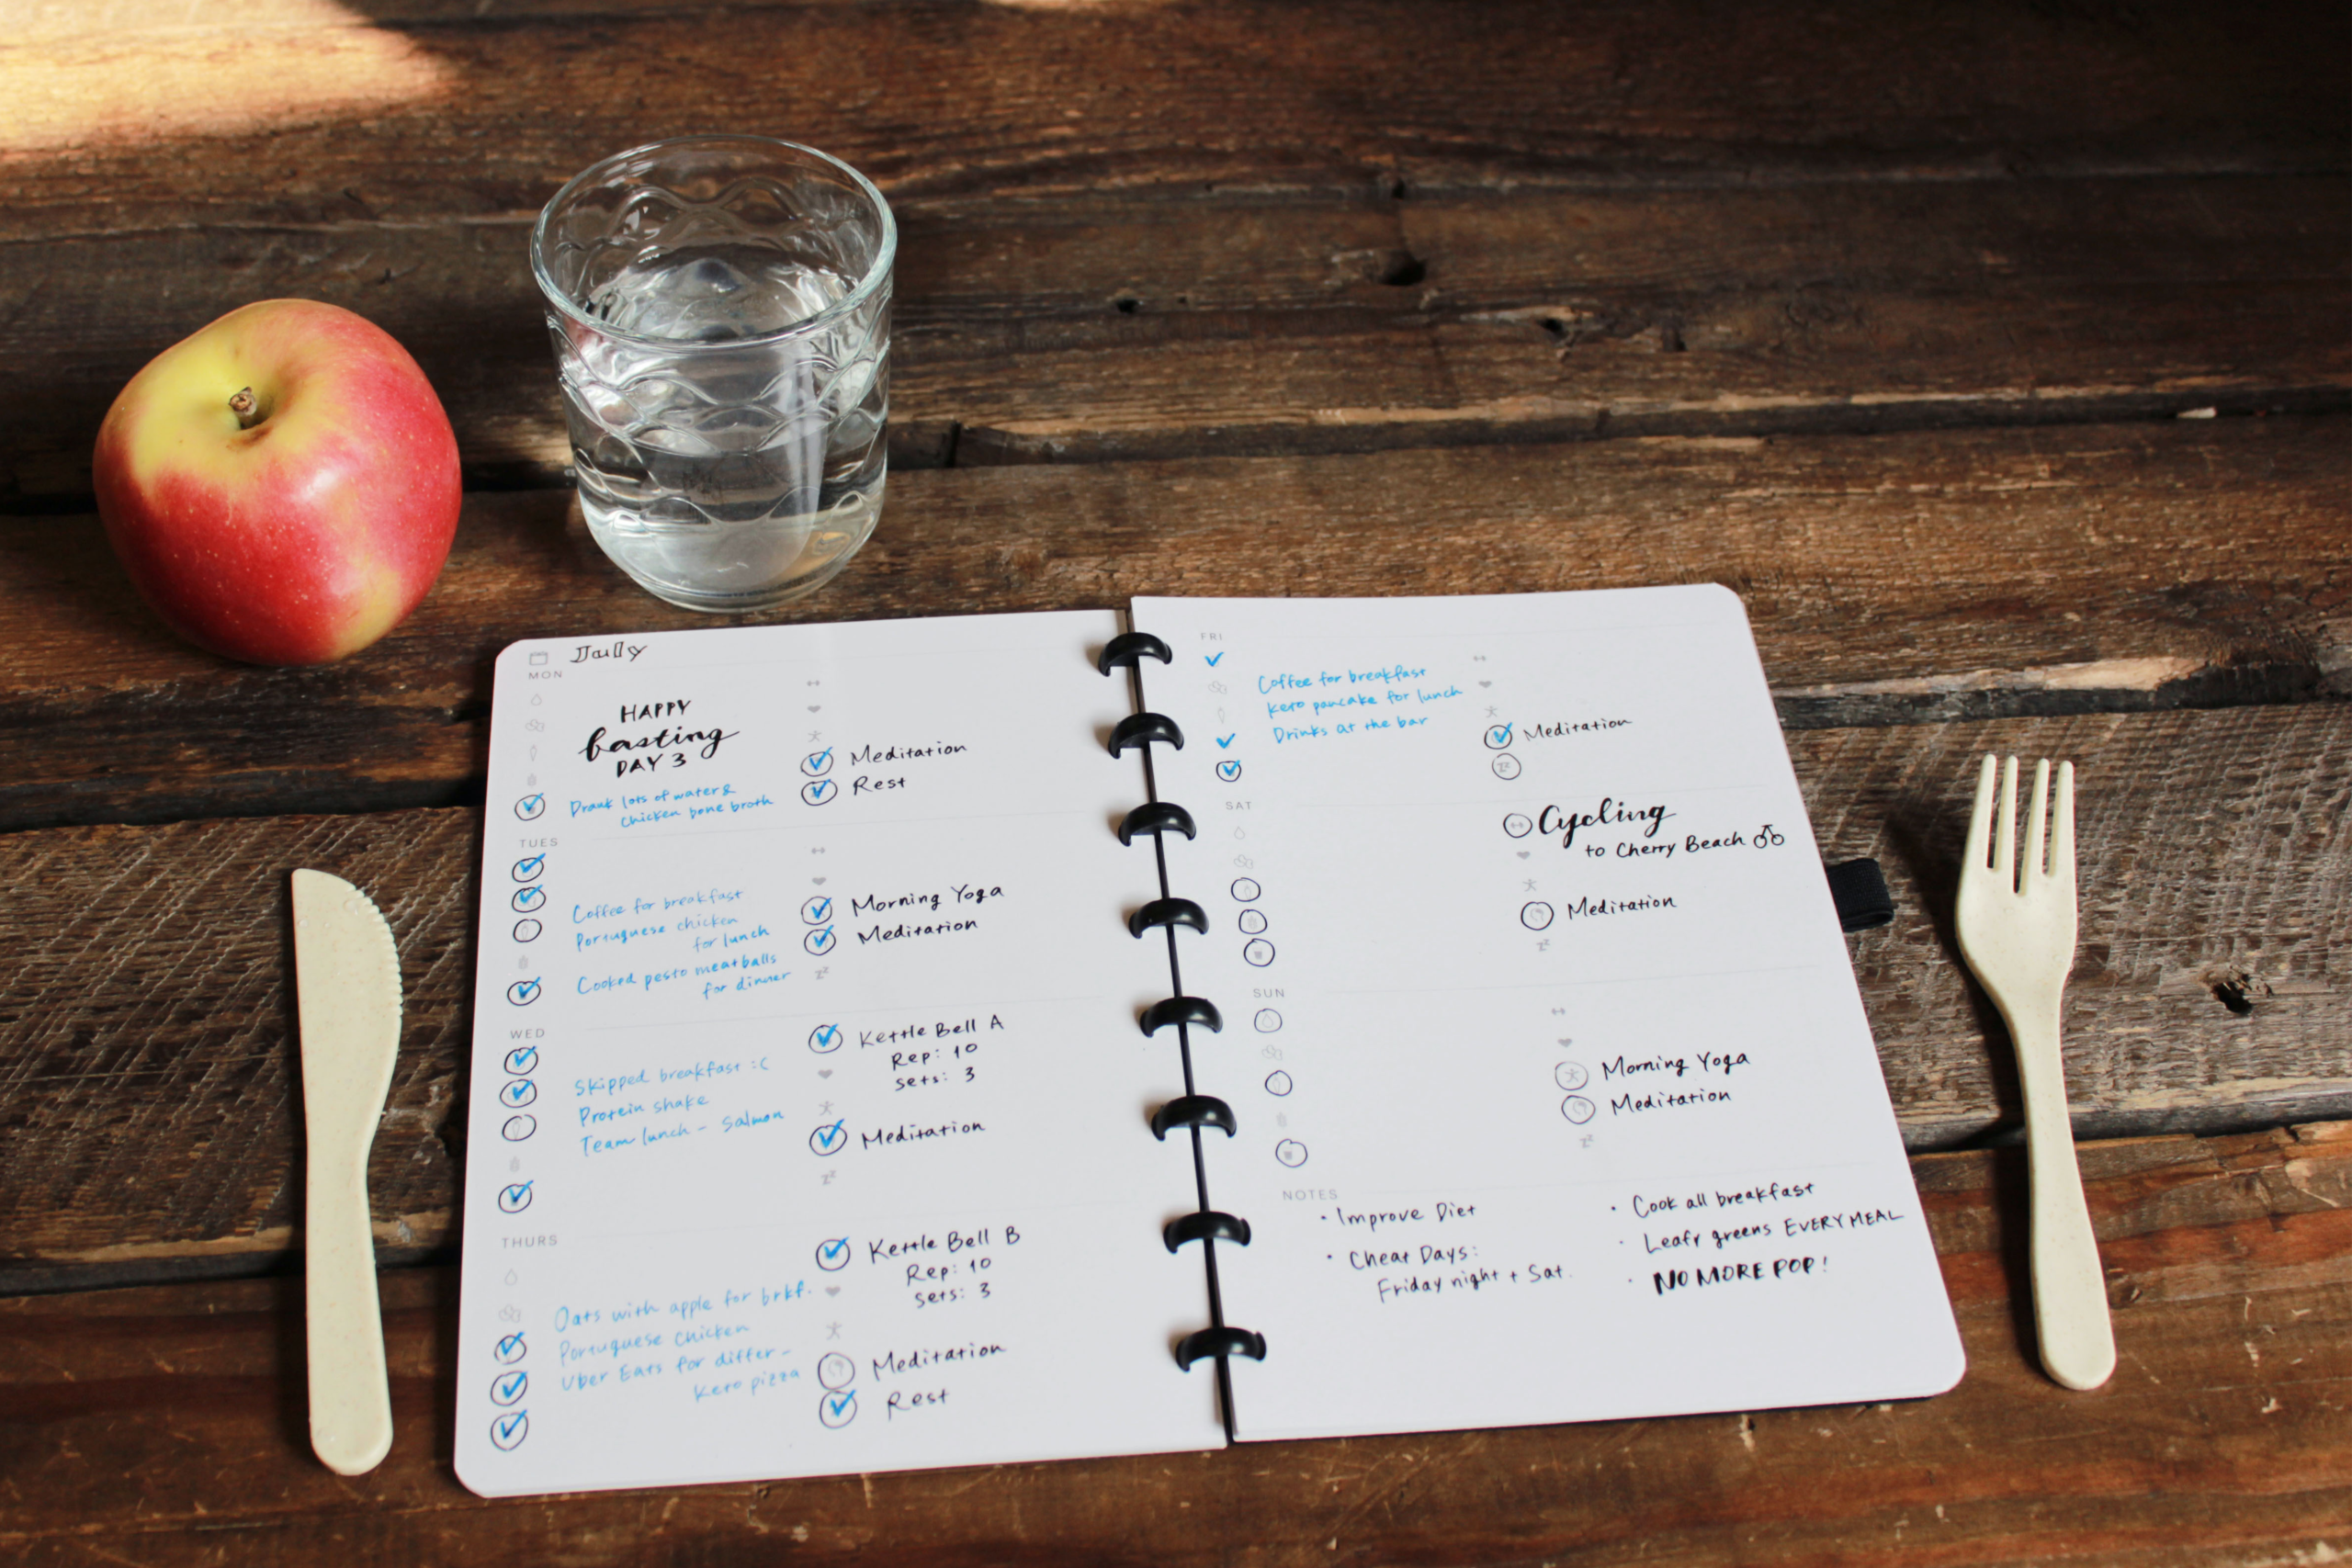 July
MON
HAPPY
fasting
DAY 3
Drank lots of water &
chicken bone broth
Meditation
Rest
TUES
Coffee for breakfast
Portuguese chicken
for lunch
Cooked pesto meatballs
for dinner
Morning Yoga
Meditation
zz
WED
Skipped breakfast :C
Protein shake
Team lunch - Salmon
Kettle Bell A
Rep: 10
sets: 3
Meditation
zz
THURS
Oats with apple for brkf.
Portuguese Chicken
Uber Eats for differ -
Keto pizza
Kettle Bell B
Rep: 10
sets: 3
Meditation
Rest
FRI
Coffee for breakfast
Keto pancake for lunch
Drinks at the bar
Meditation
zz
SAT
Cycling
to Cherry Beach
Meditation
zz
SUN
Morning Yoga
Meditation
zz
NOTES
• Improve Diet
• Cheat Days:
Friday night + Sat.
• Cook all breakfast
• Leafy greens EVERY MEAL
• NO MORE POP!